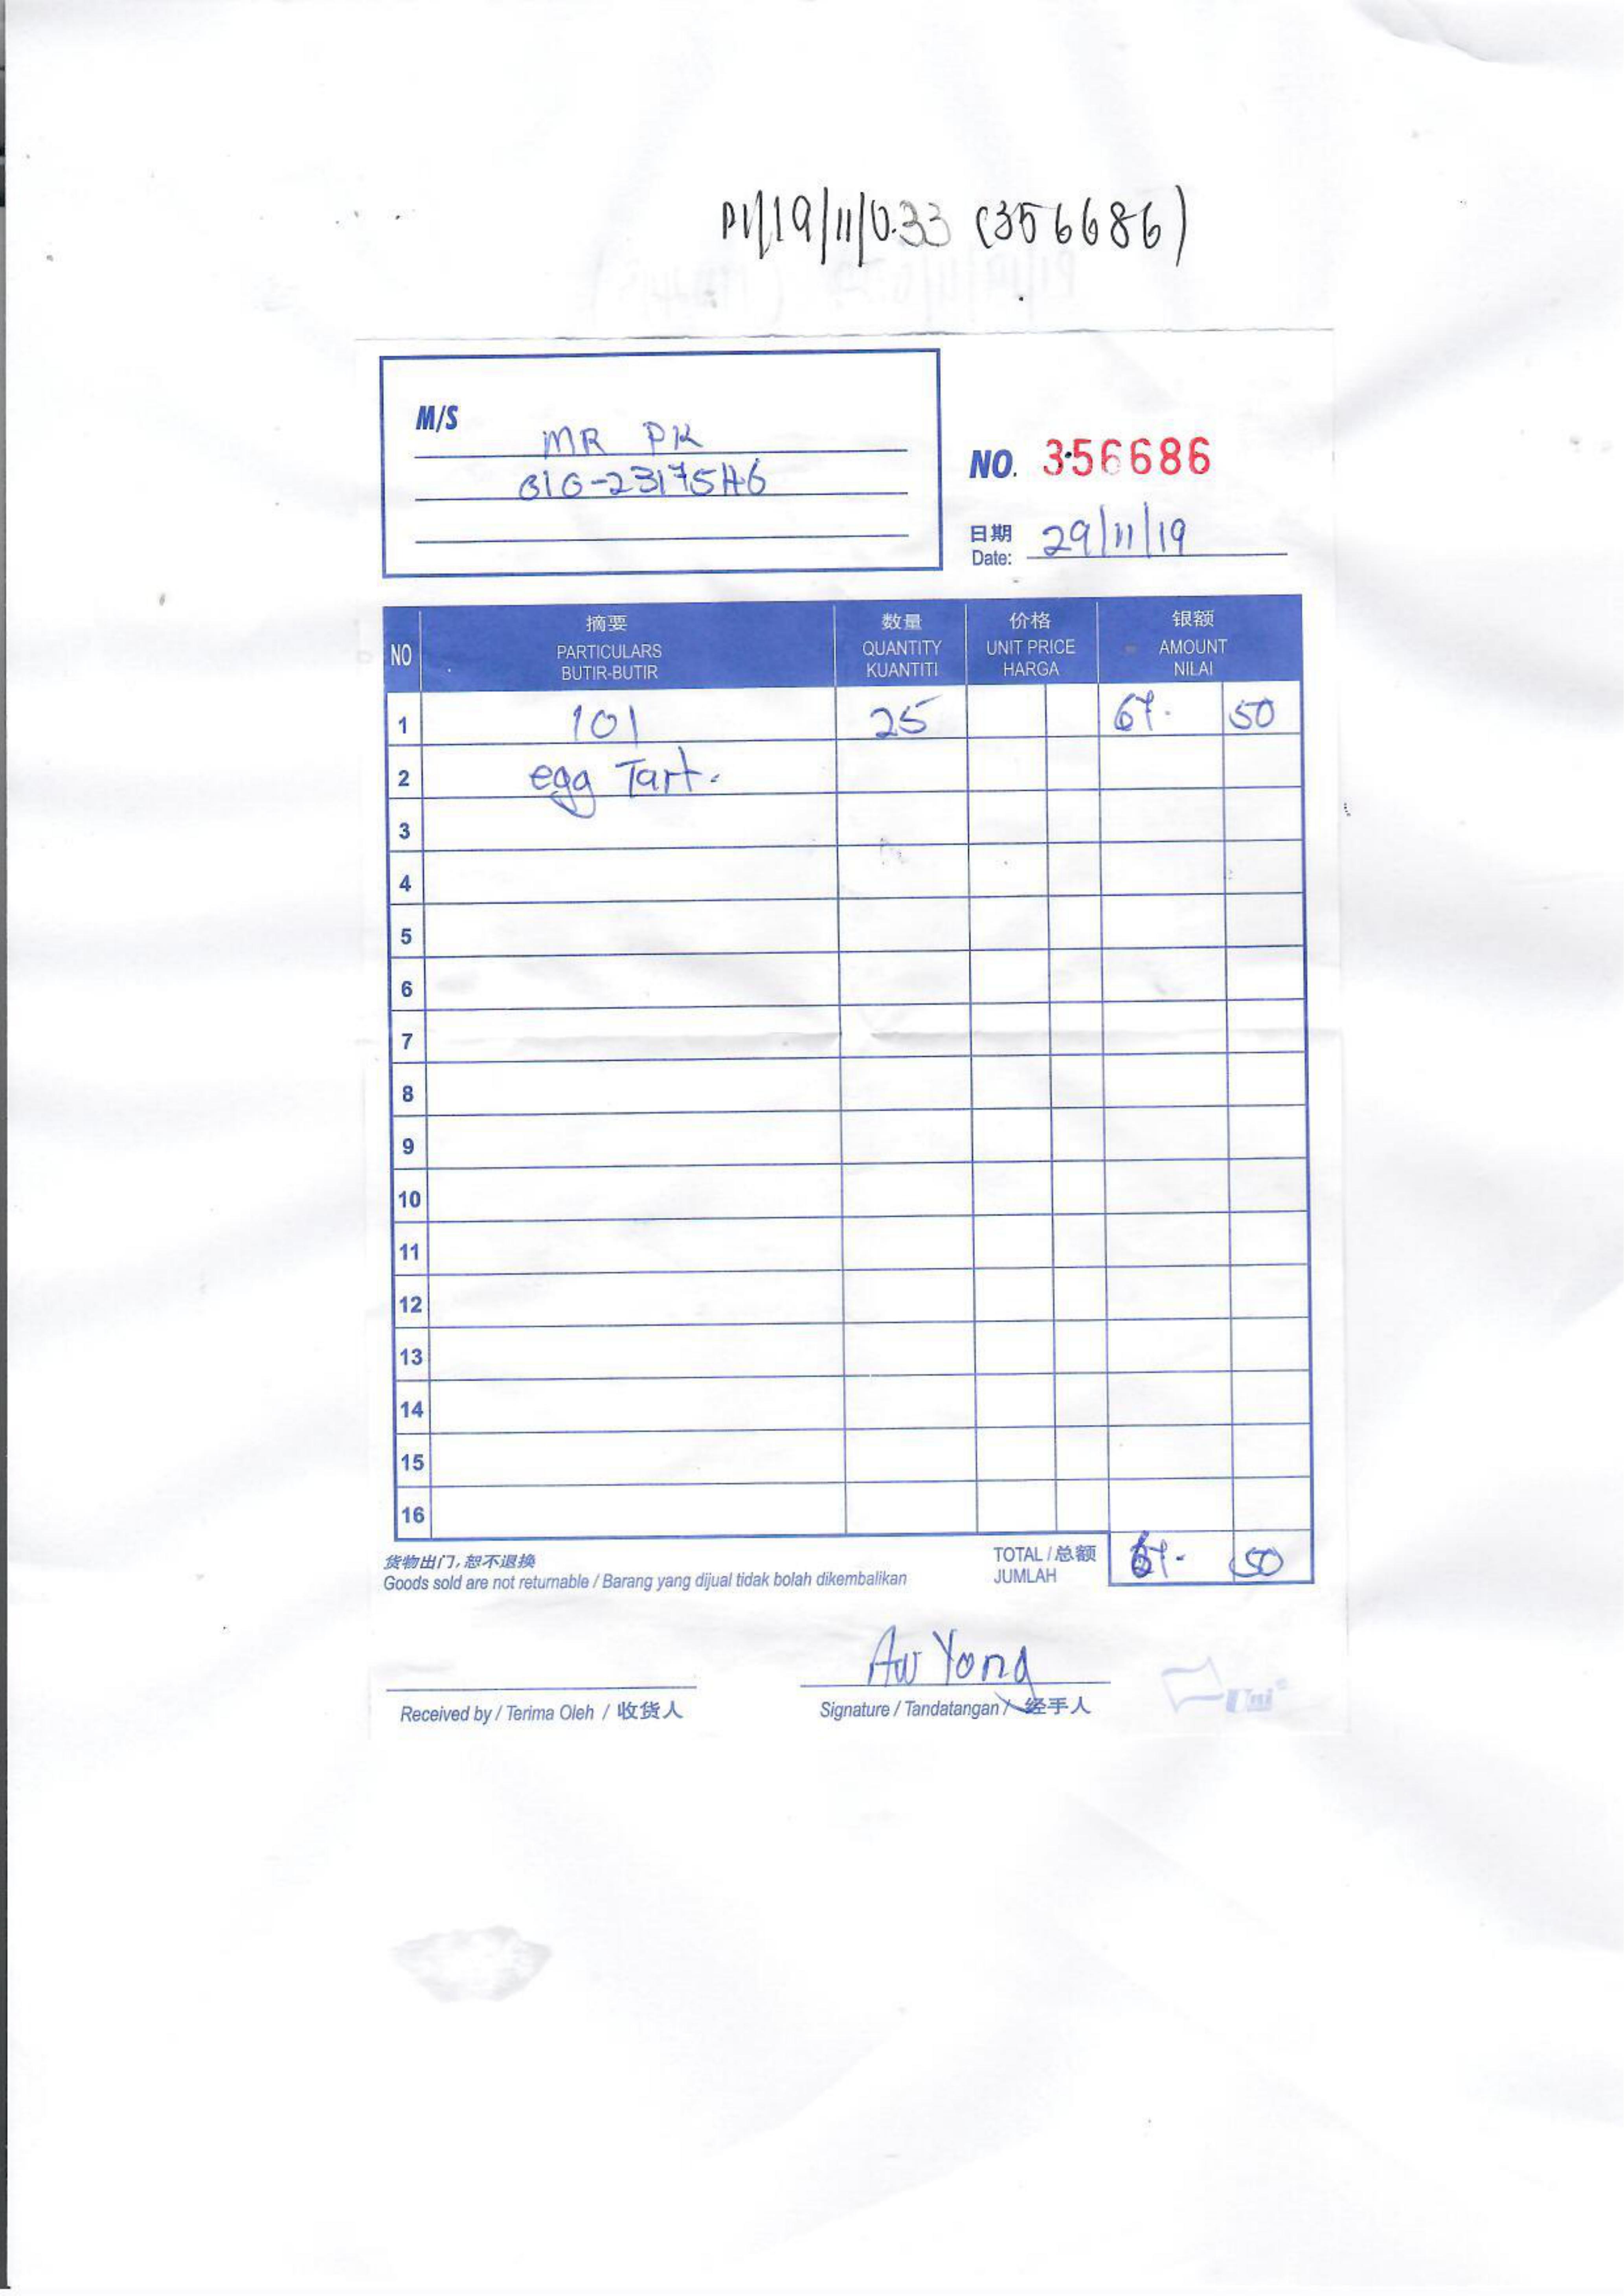 PI/19/11/0.33 (356686)
M/S
MR PK
016-2317546
NO. 356686
日期
Date: 29/11/19
NO
摘要
PARTICULARS
BUTIR-BUTIR
数量
QUANTITY
KUANTITI
价格
UNIT PRICE
HARGA
银额
AMOUNT
NILAI
1 101 25 67. 50
2 egg Tart.
3
4
5
6
7
8
9
10
11
12
13
14
15
16
货物出门,恕不退换
Goods sold are not returnable / Barang yang dijual tidak bolah dikembalikan
TOTAL / 总额
JUMLAH
67. 50
Aw Yong
Received by / Terima Oleh / 收货人
Signature / Tandatangan / 经手人
Uni